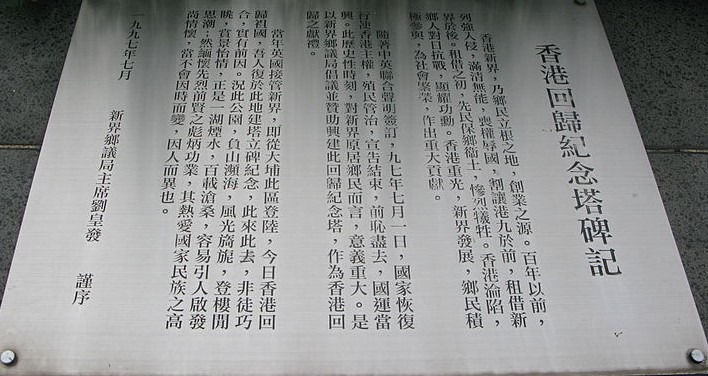 香港回歸紀念塔碑記
香港新界，乃鄉民立根之地，創業之源。百年以前，
列強入侵，滿清無能，喪權辱國，割讓港九於前，租借新
界於後。租借之初，先民保鄉衞土，慘烈犧牲。香港淪陷，
鄉人對日抗戰，顯耀功勳。香港重光，新界發展，鄉民積
極參與，為社會繁榮，作出重大貢獻。
隨著中英聯合聲明簽訂，九七年七月一日，國家恢復
行使香港主權，殖民管治，宣告結束，前恥盡去，國運當
興。此歷史性時刻，對新界原居鄉民而言，意義重大。是
以新界鄉議局倡議並贊助興建此回歸紀念塔，作為香港回
歸之獻禮。
當年英國接管新界，即從大埔此區登陸，今日香港回
歸祖國，吾人復於此地建塔立碑紀念，此來此去，非徒巧
合，實有前因。況此公園，負山瀕海，風光旖旎，登樓閒
眺，賞景怡情，正是一湖煙水，百載滄桑，容易引人啟發
思潮；然緬懷先烈前賢之彪炳功業，其熱愛國家民族之高
尚情懷，當不會因時而變，因人而異也。
新界鄉議局主席劉皇發 謹序
一九九七年七月